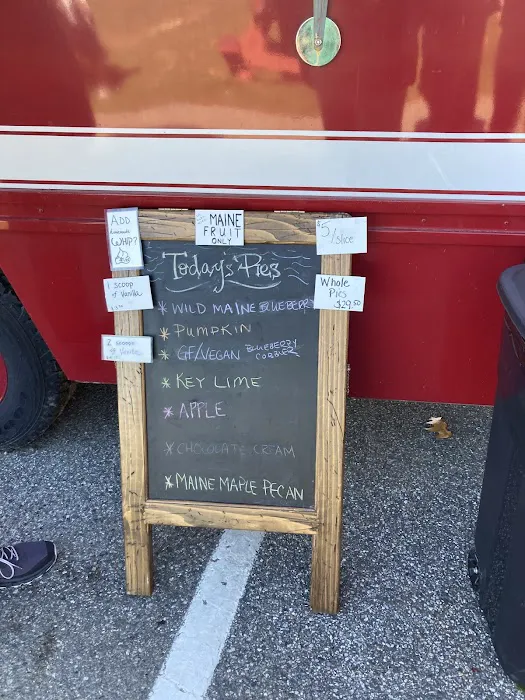 ADD
homemade
WHIP?
MAINE
FRUIT
ONLY
$5/slice
1 scoop
of Vanilla
Whole
Pies
$29.50
2 scoops
Today's Pies
* WILD MAINE BLUEBERRY
* PUMPKIN
* GF/VEGAN BLUEBERRY
COBBLER
* KEY LIME
* APPLE
* CHOCOLATE CREAM
* MAINE MAPLE PECAN